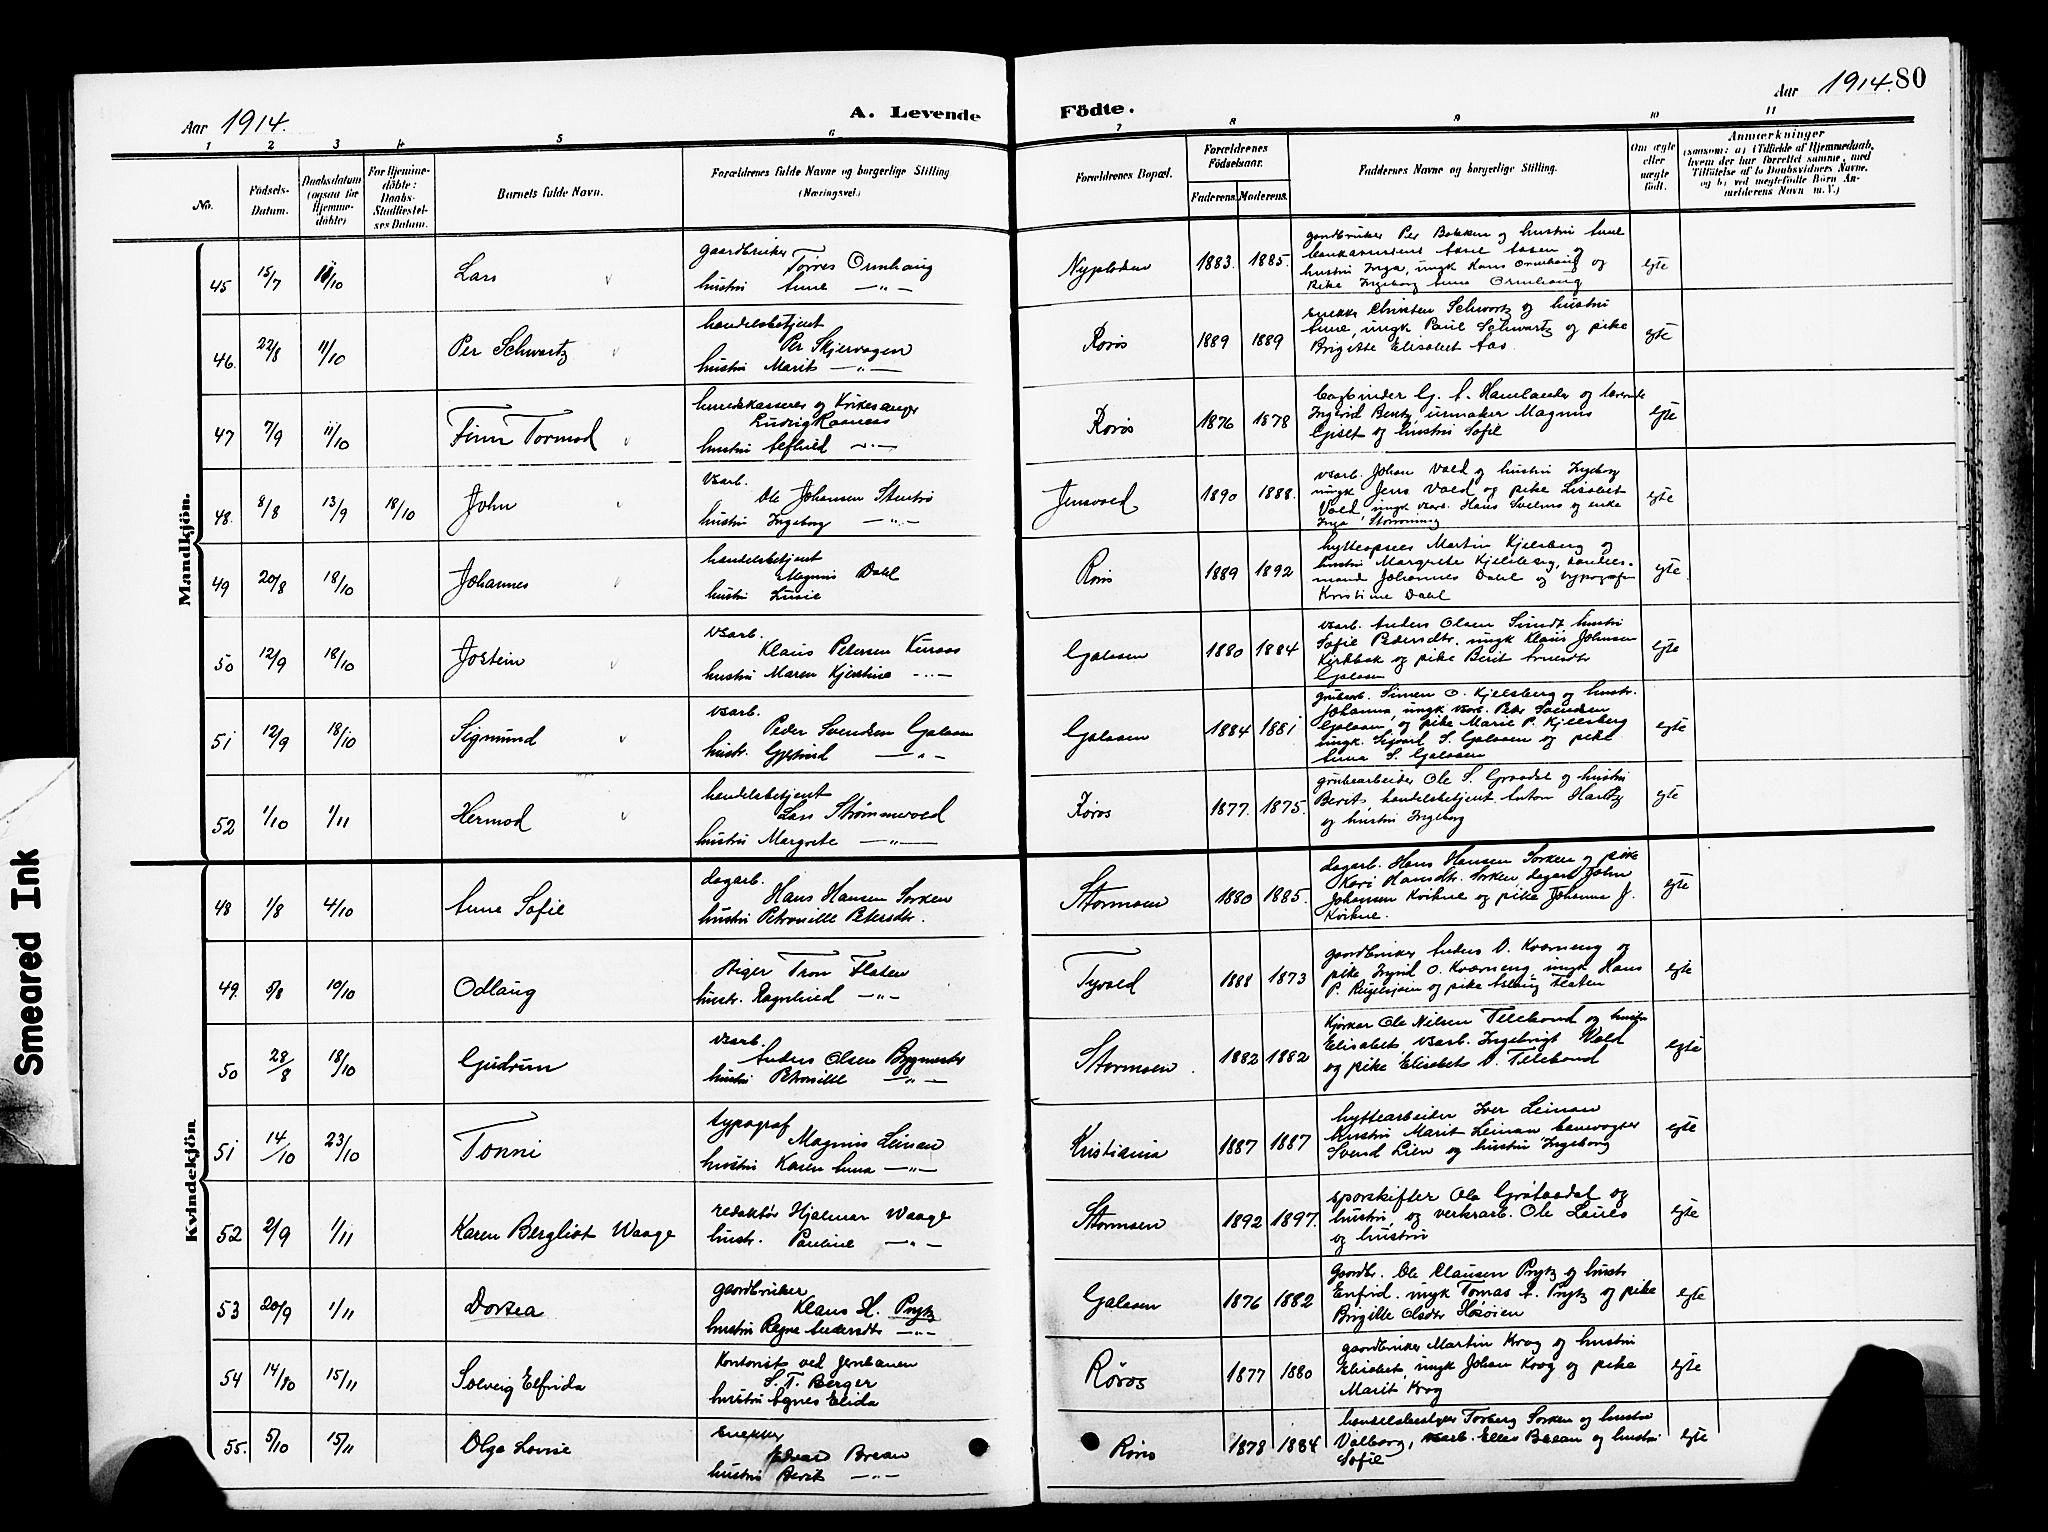 Aar 1914.
A. Levende
Födte.
Aar 1914. 80
1 2 3 4 5 6
7 8 9 10 11
No.
Födsels-Datum.
Daabsdatum (ogsaa for Hjemmedöbte)
For Hjemmedöbte: Daabs-Stadfæstelses Datum.
Barnets fulde Navn.
Forældrenes fulde Navne og borgerlige Stilling (Næringsvei.)
Forældrenes Bopæl.
Forældrenes Födselsaar.
Faderens. Moderens.
Faddernes Navne og borgerlige Stilling.
Om ægte eller uægte födt.
Anmærkninger
(saasom: a) i Tilfælde af Hjemmedaab,
hvem der har forrettet samme, med
Tilföielse af to Daabsvidners Navne,
og b) ved uægtefödte Börn An-
melderens Navn m. V.)
Mandkjön.
45 15/7 11/10 Lars
gaardbruker Torres Ormhaug
hustru Anne —"—
Nyplodsen 1883. 1885.
gaardbruker Per Bakken og hustru Anne
hustru Inga, ungk Hans Ormhaug og
Pike Ingeborg Anna Ormhaug
egte
46. 22/8 11/10 Per Schwartz
handelsbetjent
Per Skjervagen
hustru Marit —"—
Røros 1889 1889
snekker Christen Schwartz og hustru
Anne, ungk Paul Schwartz og pike
Brigitte Elisabet Aas.
egte
47 7/9 11/10 Finn Tormod
Ludvig
hustru Alfhild —"—
Røros 1876 1878
Ingerid Bentz, urmaker Magnus
Gjislet og hustru Sofie
egte
48. 8/8 13/9 18/10 John
vsarb.
Ole Johansen
hustru Ingeborg —"—
Jensvold 1890 1888.
vsarb. Johan Vold og hustru Ingeborg
ungk Jens Vold og pike Lisabet
Vold, ungk vsarb. Hans
egte
49 20/8 18/10 Johannes
handelsbetjent
Magnus Dahl
hustru
Røros 1889 1892
hytteopsees Martin Kjelsberg og
hustru Margrete Kjelsberg, handels-
mand Johannes Dahl og typograf
Kristine Dahl
egte
50 12/9 18/10 Jostein
vsarb.
Klaus Petersen Kuraas
hustru Maren Kjerstine —"—
Galaaen 1880 1884
vsarb. Anders Olsen Sundt hustru
Sofie Pedersdtr. ungk Klaus Johnsen
og pike Berit
Galaaen
egte
51 12/9 18/10 Sigmund
vsarb.
Peder Svendsen Galaaen
hustr. —"—
Galaaen 1884 1881
grubearb. Simen O. Kjelsberg og hustr.
Johanna, ungk vsarb. Peder Svendsen
Galaaen, og pike Marie P. Kjelsberg
ungk. Sivert S. Galaaen og pike
Anna S. Galaaen
egte
52 1/10 1/11 Hermod
handelsbetjent
Lars Strømmevold
hustru Margrete —"—
Røros 1877. 1875.
grubearbeider Ole S. Graadal og hustru
Berit, handelsbetjent Anton Hartz
og hustru Ingeborg
egte
Kvindekjön
48 1/8 4/10 Anne Sofie
dagarb.
Hans Hansen Sorken
hustru Petronille Petersdtr.
Stormoen 1880 1885.
dagarb. Hans Hansen Sorken og pike
Kari Hansdtr. Sorken dagarb John
Johansen og pike Johanna J.
egte
49. 5/8 10/10 Odlaug
Tron Flaten
hustr. Ragnhild —"—
Tyvold 1888 1873
gaardbruker Anders O. Kværneng og
pike Ingrid O. Kværneng, ungk Hans
P. og pike Aslaug Flaten
egte
50 28/8 18/10 Gudrun
vsarb.
Anders Olsen
hustru Petronille —"—
Stormoen. 1882 1882
Kjørkar Ole Nilsen og hustru
Elisabet vsarb. Ingebrigt Wold
og pike Elisabet
egte
51 14/10 23/10 Tonni
typograf
Magnus Leinan
hustru Karen Anna —"—
Kristiania 1887 1887
hyttearbeider Iver Leinan
hustru Marit Leinan banevogter
Svend Lien og hustru Ingeborg
egte
52 2/9 1/11 Karen Bergliot Waage
redaktør Hjalmar Waage
hustr. Pauline —"—
Stormoen 1892 1897.
sporskifter Ole og
hustru og verksarb. Ole
og hustru
egte
53 20/9 1/11 Dortea
gaardbruker
Klaus H. Prytz
hustru Ragne Andersdtr —"—
Galaaen 1876 1882
Gaardbr. Ole Clausen Prytz og hustr
ungk Tomas A. Prytz og pike
Brigitte Olsdtr Høsøien
egte
54 14/10 15/11 Solveig Elfrida
Kontorist ved jernbanen
S. T. Berger
hustru Agnes Elida
Røros 1877 1880
gaardbruker Martin Krog og hustru
Elisabet, ungk Johan Krog og pike
Marit Krog
egte
55. 5/10 15/11 Olga Lovise
snekker
Edvar Brean
hustru Berit —"—
Røros 1878 1884
handelsbestyrer Torberg Sorken og hustru
Valborg, vsarb. Elles Breau og hustru
Sofie
egte
Smeared Ink